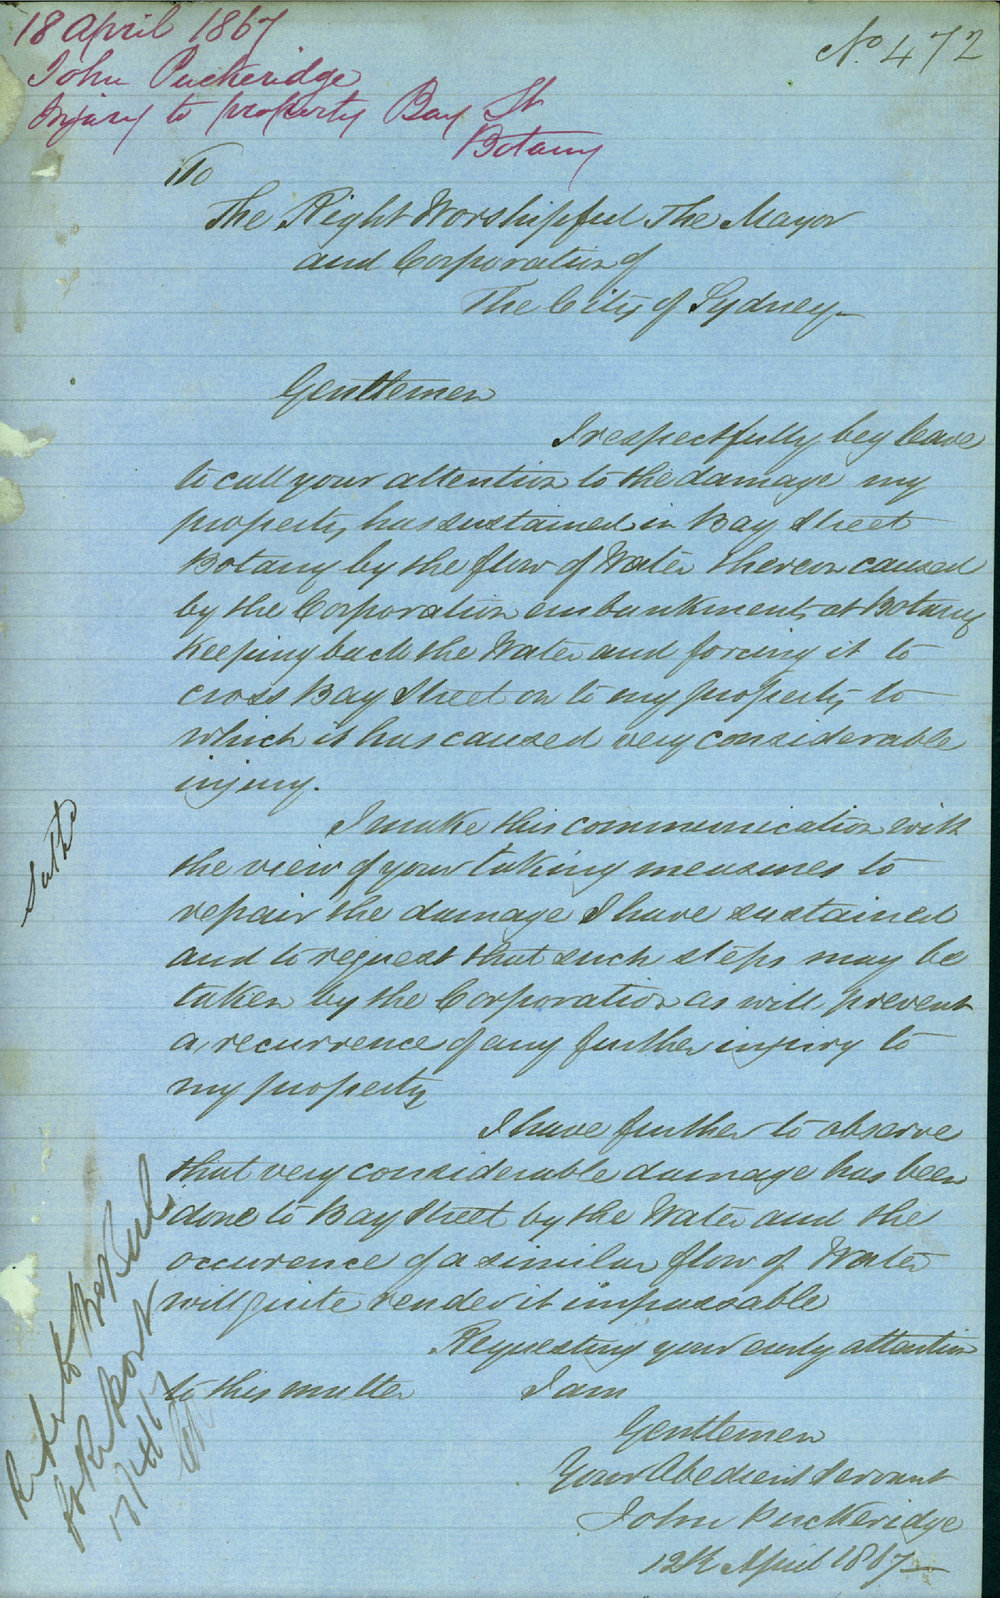 18 April 1867
John Puckeridge
Injury to property Bay St
Botany
No. 472
To
The Right Worshipful The Mayor
and Corporation of
The City of Sydney
Gentlemen
I respectfully beg leave
to call your attention to the damage my
property has sustained in Bay Street
Botany by the flow of Water thereon caused
by the Corporation embankments at Botany
keeping back the Water and forcing it to
cross Bay Street on to my property to
which it has caused very considerable
injury.
I make this communication with
the view of your taking measures to
repair the damage I have sustained
and to request that such steps may be
taken by the Corporation as will prevent
a recurrence of any further injury to
my property
I have further to observe
that very considerable damage has been
done to Bay Street by the Water and the
occurence of a similar flow of Water
will quite render it impassable
Requesting your early attention
to this matter I am
Gentlemen
Your Obedient Servant
John Puckeridge
12th April 1867
Refer to
for Report
17/4/67